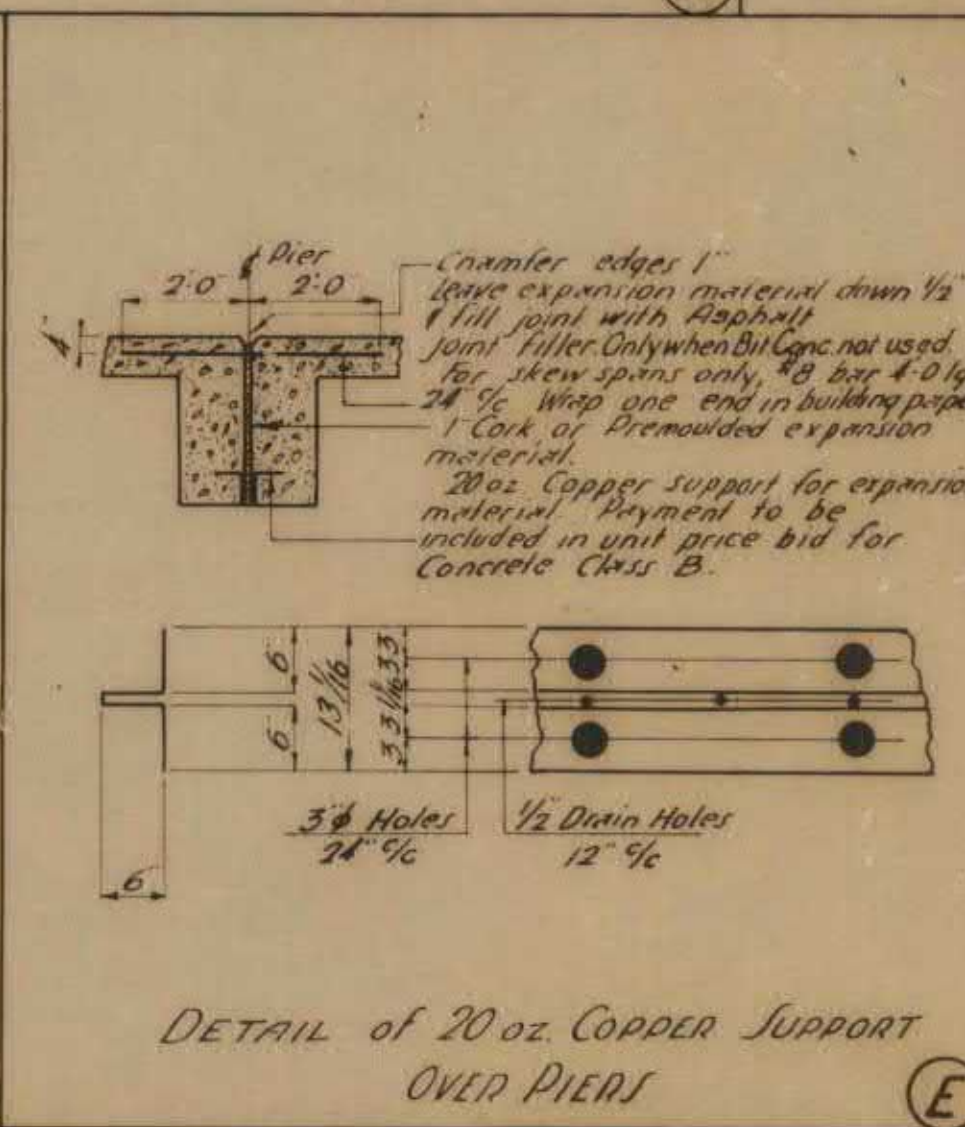 Pier
2'-0" 2'-0"
Chamfer edges 1"
leave expansion material down 1/2"
& fill joint with Asphalt
Joint Filler. Only when Bit. Conc. not used.
For skew spans only, #8 bar 4'-0 lg
24" c/c Wrap one end in building pape
1" Cork or Premoulded expansion
material.
20 oz. Copper support for expansio
material Payment to be
included in unit price bid for
Concrete Class B.
6" 6" 13 1/16 3 3 1/16 3 3
3"ϕ Holes
24" c/c
1/2" Drain Holes
12" c/c
6"
DETAIL of 20 oz. COPPER SUPPORT
OVER PIERS
E